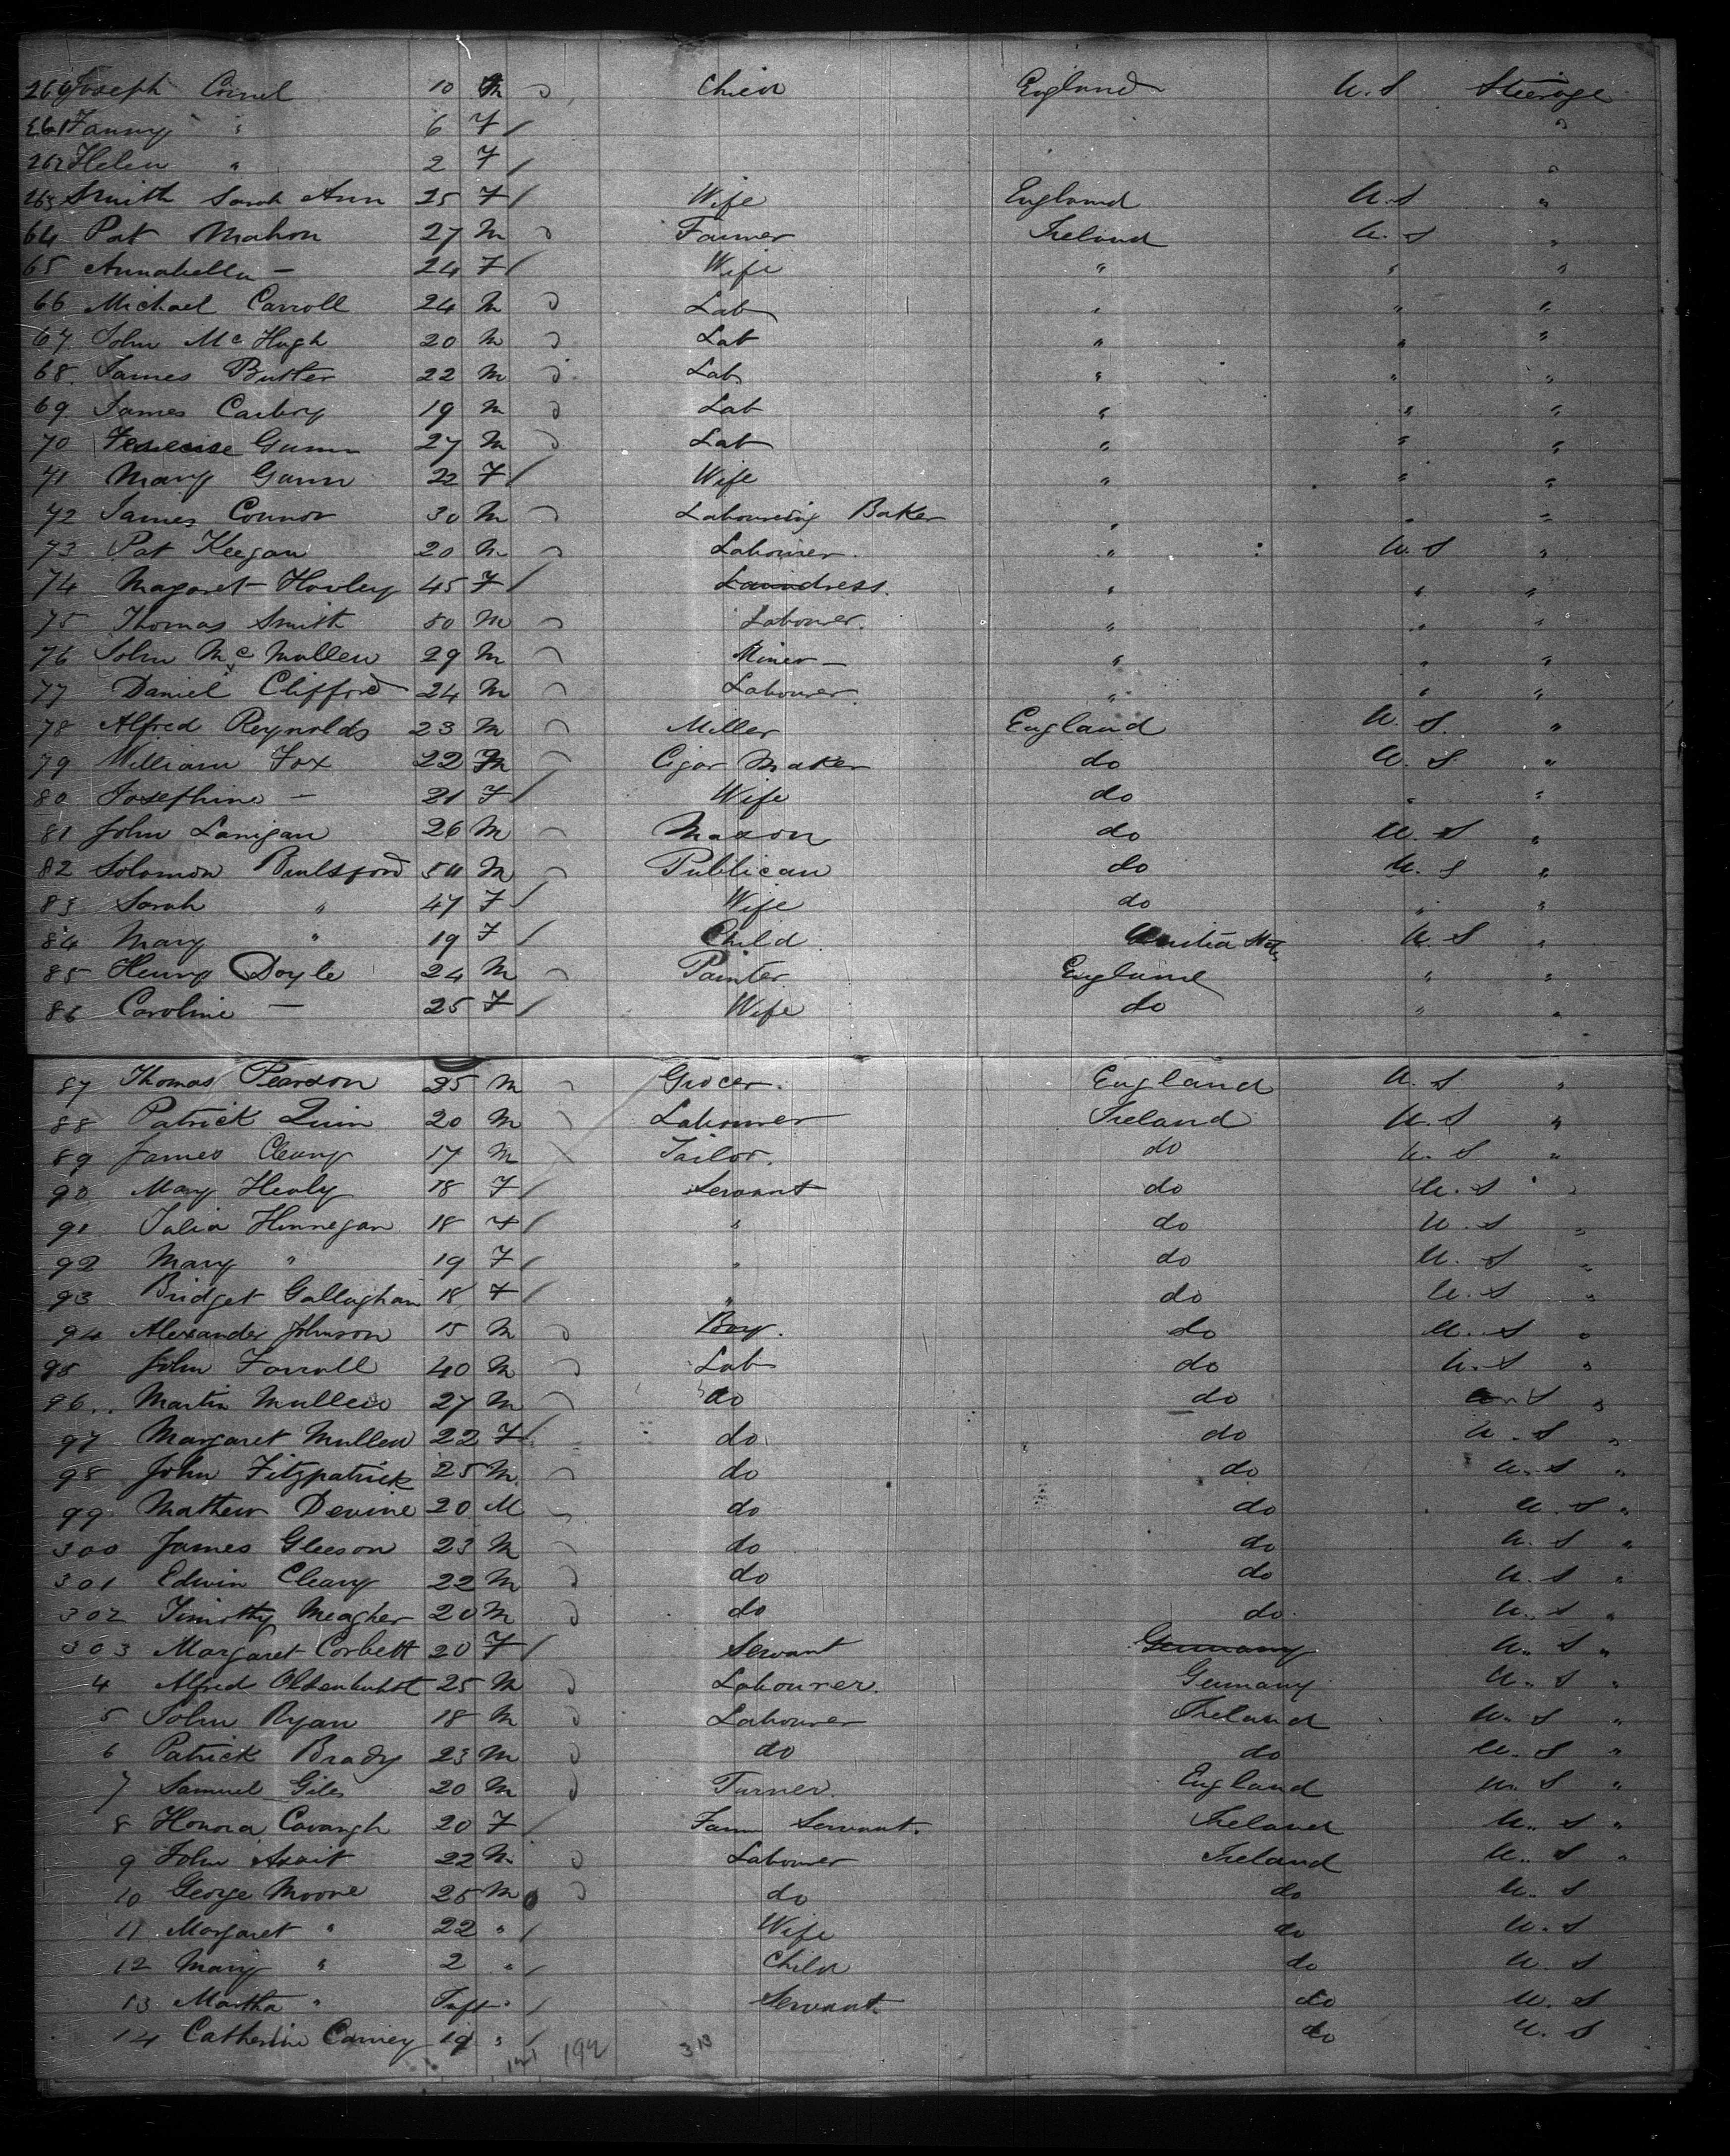 260 Joseph Cornel 10 M Child England U.S Steerage
261 Fanny " 6 F "
262 Helen " 2 F "
263 Smith Sarah Ann 25 F Wife England U.S "
64 Pat Mahon 27 M Farmer Ireland U.S "
65 Annabella — 24 F Wife " " "
66 Michael Carroll 24 M Lab " " "
67 John Mc Hugh 20 M Lab " " "
68. James Butler 22 M Lab " " "
69. James Carbry 19 M Lab " " "
70 Gunn 27 M Lab " " "
71 Mary Gunn 22 F Wife " " "
72 James Connor 30 M Labouring Baker " " "
73 Pat Keegan 20 M Labourer. " U.S "
74 Magaret Hovley 45 F Laundress. " " "
75 Thomas Smith 50 M Labourer. " " "
76 John Mc Mullen 29 M Miner — " " "
77 Daniel Clifford 24 M Labourer " " "
78 Alfred Reynolds 23 M Miller England U.S. "
79 William Fox 22 M Cigar Maker do U.S "
80 Josephine — 21 F Wife do " "
81 John Lanigan 26 M Mason do U.S "
82 Solomon 50 M Publican do U.S "
83 Sarah " 47 F Wife do " "
84 Mary " 19 F Child. United Sts U.S "
85 Henry Doyle 24 M Painter England " "
86 Caroline — 25 F Wife do " "
87 Thomas Pearson 25 M Grocer. England U.S "
88 Patrick Quin 20 M Labourer Ireland U.S "
89 James Cleary 17 M Tailor. do U.S "
90 Mary Healy 18 F Servant do U.S "
91 Julia Hinnegan 18 F " do U.S "
92 Mary " 19 F " do U.S "
93 Bridget Gallaghan 18 F " do U.S "
94 Alexander Johnson 15 M Boy. do U.S "
95 John Farrall 40 M Lab do U.S "
96.. Martin Mullen 27 M do do U.S "
97 Margaret Mullen 22 F do do U.S "
98 John Fitzpatrick 25 M. do do U.S "
99 Mathew Devine 20 M do do U.S "
300 James Gleeson 23 M do do U.S "
301 Edwin Cleary 22 M do do U.S "
302 Timothy Meagher 20 M do do U.S "
303 Margaret Corbett 20 F Servant Germany U.S "
4 Alfred 25 M Labourer. Germany U.S "
5 John Ryan 18 M Labourer Ireland U.S "
6 Patrick Brady 23 M do do U.S "
7 Samuel Giles 20 M Turner. England U.S "
8 Honora Cavangh 20 F Farm Servant. Ireland U.S "
9 John 22 M Labourer Ireland U.S "
10 George Moore 25 M do do U.S
11 Margaret " 22 " Wife do U.S
12 Mary " 2 " Child do U.S
13 Martha " Inft " Servant do U.S
14 Catherine Carney 19 " do U.S